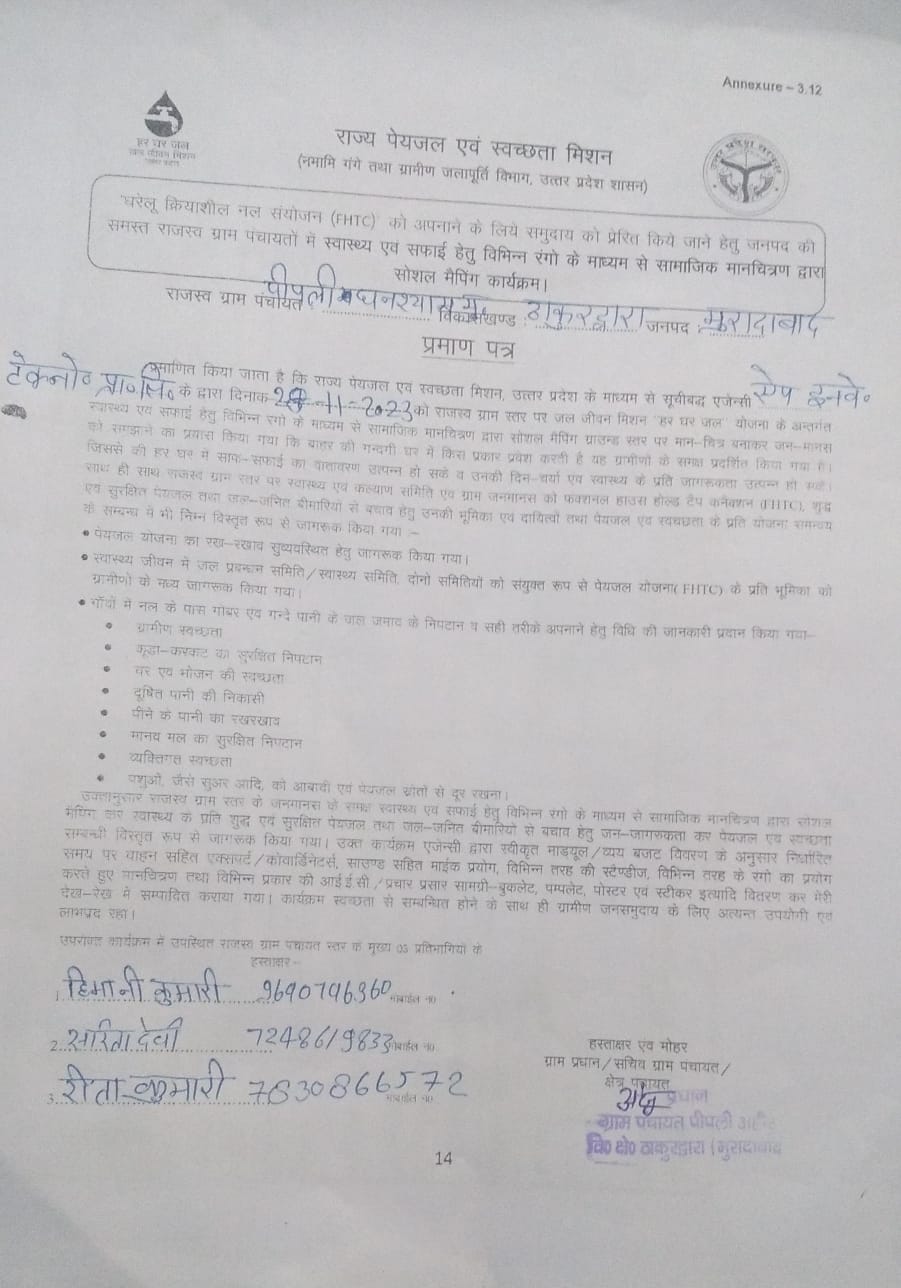 Annexure – 3.12
हर घर जल
जल जीवन मिशन
राज्य पेयजल एवं स्वच्छता मिशन
(नमामि गंगे तथा ग्रामीण जलापूर्ति विभाग, उत्तर प्रदेश शासन)
"घरेलू क्रियाशील नल संयोजन (FHTC) को अपनाने के लिये समुदाय को प्रेरित किये जाने हेतु जनपद की
समस्त राजस्व ग्राम पंचायतों में स्वास्थ्य एवं सफाई हेतु विभिन्न रंगो के माध्यम से सामाजिक मानचित्रण द्वारा
सोशल मैपिंग कार्यक्रम।
राजस्व ग्राम पंचायत पीपली घनश्याम विकासखण्ड : ठाकुरद्वारा जनपद : मुरादाबाद
प्रमाण पत्र
प्रमाणित किया जाता है कि राज्य पेयजल एवं स्वच्छता मिशन, उत्तर प्रदेश के माध्यम से सूचीबद्ध एजेन्सी सेप इनवे०
टेक्नो० प्रा० लि० के द्वारा दिनाक -11-2023 को राजस्व ग्राम स्तर पर जल जीवन मिशन "हर घर जल" योजना के अन्तर्गत
स्वास्थ्य एवं सफाई हेतु विभिन्न रंगो के माध्यम से सामाजिक मानचित्रण द्वारा सोशल मैपिंग ग्राउन्ड स्तर पर मान–चित्र बनाकर जन–मानस
को समझाने का प्रयास किया गया कि बाहर की गन्दगी घर में किस प्रकार प्रवेश करती है यह ग्रामीणों के समक्ष प्रदर्शित किया गया है।
जिससे की हर घर में साफ–सफाई का वातावरण उत्पन्न हो सके व उनकी दिन–चर्या एवं स्वास्थ्य के प्रति जागरूकता उत्पन्न हो सके।
साथ ही साथ राजस्व ग्राम स्तर पर स्वास्थ्य एवं कल्याण समिति एवं ग्राम जनमानस को फंक्शनल हाउस होल्ड टैप कनैक्शन (FHTC), शुद्ध
एवं सुरक्षित पेयजल तथा जल–जनित बीमारियों से बचाव हेतु उनकी भूमिका एवं दायित्वों तथा पेयजल एवं स्वच्छता के प्रति योजना समन्वय
के सम्बन्ध में भी निम्न विस्तृत रूप से जागरूक किया गया :–
• पेयजल योजना का रख–रखाव सुव्यवस्थित हेतु जागरूक किया गया।
• स्वास्थ्य जीवन में जल प्रबन्धन समिति/स्वास्थ्य समिति, दोनो समितियों को संयुक्त रूप से पेयजल योजना(FHTC) के प्रति भूमिका को
ग्रामीणों के मध्य जागरूक किया गया।
• गाँवों में नल के पास गोबर एंव गन्दे पानी के जल जमाव के निपटान व सही तरीके अपनाने हेतु विधि की जानकारी प्रदान किया गया–
• ग्रामीण स्वच्छता
• कूडा–करकट का सुरक्षित निपटान
• घर एव भोजन की स्वच्छता
• दूषित पानी की निकासी
• पीने के पानी का रखरखाव
• मानव मल का सुरक्षित निपटान
• व्यक्तिगत स्वच्छता
• पशुओं, जैसे सुअर आदि, को आबादी एवं पेयजल स्रोतों से दूर रखना।
उक्तानुसार राजस्व ग्राम स्तर के जनमानस के समक्ष स्वास्थ्य एवं सफाई हेतु विभिन्न रंगो के माध्यम से सामाजिक मानचित्रण द्वारा सोशल
मैपिंग कर स्वास्थ्य के प्रति शुद्ध एवं सुरक्षित पेयजल तथा जल–जनित बीमारियों से बचाव हेतु जन–जागरूकता कर पेयजल एवं स्वच्छता
सम्बन्धी विस्तृत रूप से जागरूक किया गया। उक्त कार्यक्रम एजेन्सी द्वारा स्वीकृत माड्यूल/व्यय बजट विवरण के अनुसार निर्धारित
समय पर वाहन सहित एक्सपर्ट/कोवार्डिनेटर्स, साउण्ड सहित माईक प्रयोग, विभिन्न तरह की स्टेण्डीज, विभिन्न तरह के रंगो का प्रयोग
करते हुए मानचित्रण तथा विभिन्न प्रकार की आई.ई.सी./प्रचार प्रसार सामग्री–बुकलेट, पम्पलेट, पोस्टर एवं स्टीकर इत्यादि वितरण कर मेरी
देख–रेख में सम्पादित कराया गया। कार्यक्रम स्वच्छता से सम्बन्धित होने के साथ ही ग्रामीण जनसमुदाय के लिए अत्यन्त उपयोगी एवं
लाभप्रद रहा।
उपरोक्त कार्यक्रम में उपस्थित राजस्व ग्राम पंचायत स्तर के मुख्य 03 प्रतिभागियों के
हस्ताक्षर–
1. हिमानी कुमारी 9690796360 मोबाईल न0
2. सरिता देवी 7248619833 मोबाईल न0
3. रीता कुमारी 7830866572 मोबाईल न0
हस्ताक्षर एवं मोहर
ग्राम प्रधान/सचिव ग्राम पंचायत/
क्षेत्र पंचायत
प्रधान
ग्राम पंचायत पीपली
वि० क्षे० ठाकुरद्वारा (मुरादाबाद
14